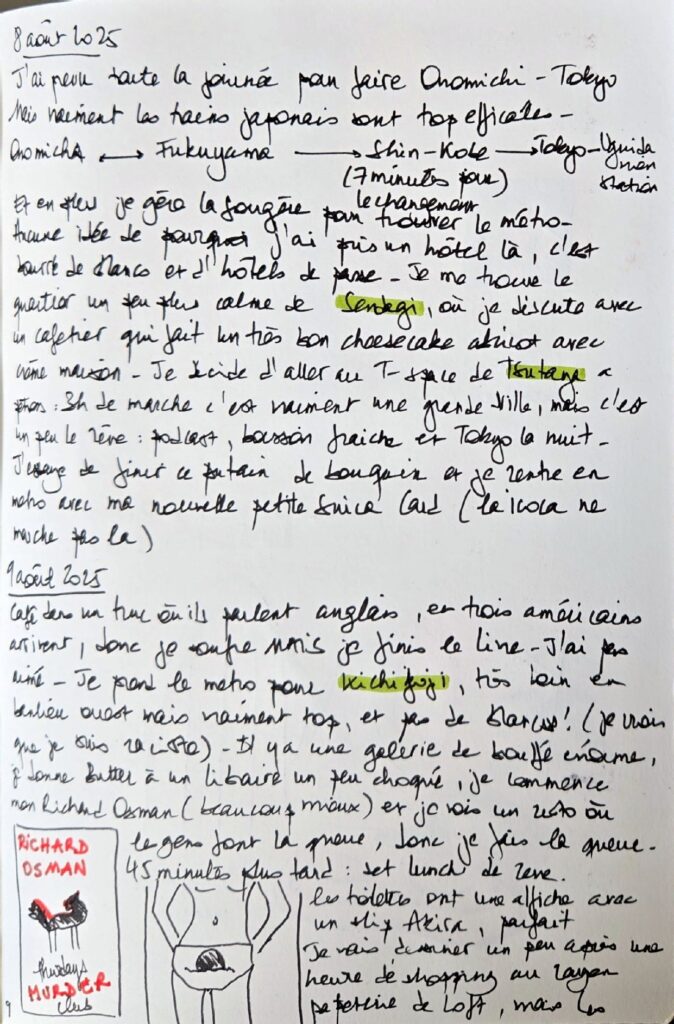 8 août 2025
J'ai prévu toute la journée pour faire Onomichi - Tokyo
Mais vraiment les trains japonais sont trop efficaces -
Onomichi ↔ Fukuyama → Shin-Kobe → Tokyo - Uguisudani station
(7 minutes pour le changement)
Et en plus je gère la fougère pour trouver le métro -
Aucune idée de pourquoi j'ai pris un hôtel là, c'est
bourré de blancs et d'hôtels de passe - Je me trouve le
quartier un peu plus calme de Sendagi, où je discute avec
un cafetier qui fait un très bon cheesecake abricot avec
crème maison - Je décide d'aller au T-space de Tsutaya a
pieds : 3h de marche c'est vraiment une grande ville, mais c'est
un peu le rêve : podcast, boisson fraîche et Tokyo la nuit -
J'essaye de finir ce putain de bouquin et je rentre en
métro avec ma nouvelle petite Suica Card (la icoca ne
marche pas la)
9 août 2025
Café dans un truc où ils parlent anglais, et trois américains
arrivent, donc je souffre mais je finis le livre - J'ai pas
aimé - Je prend le metro pour Kichijoji, très loin en
banlieu ouest mais vraiment top, et pas de blancs! (je crois
que je suis raciste) - Il y a une galerie de bouffe énorme,
je donne Butter à un libraire un peu choqué, je commence
mon Richard Osman (beaucoup mieux) et je vois un resto où
les gens font la queue, donc je fais la queue -
45 minutes plus tard : set lunch de reve.
les toilettes ont une affiche avec
un slip Akira, parfait
Je vais dessiner un peu après une
heure de shopping au rayon
papeterie de Loft, mais les
RICHARD
OSMAN
thursdays
MURDER
club
9